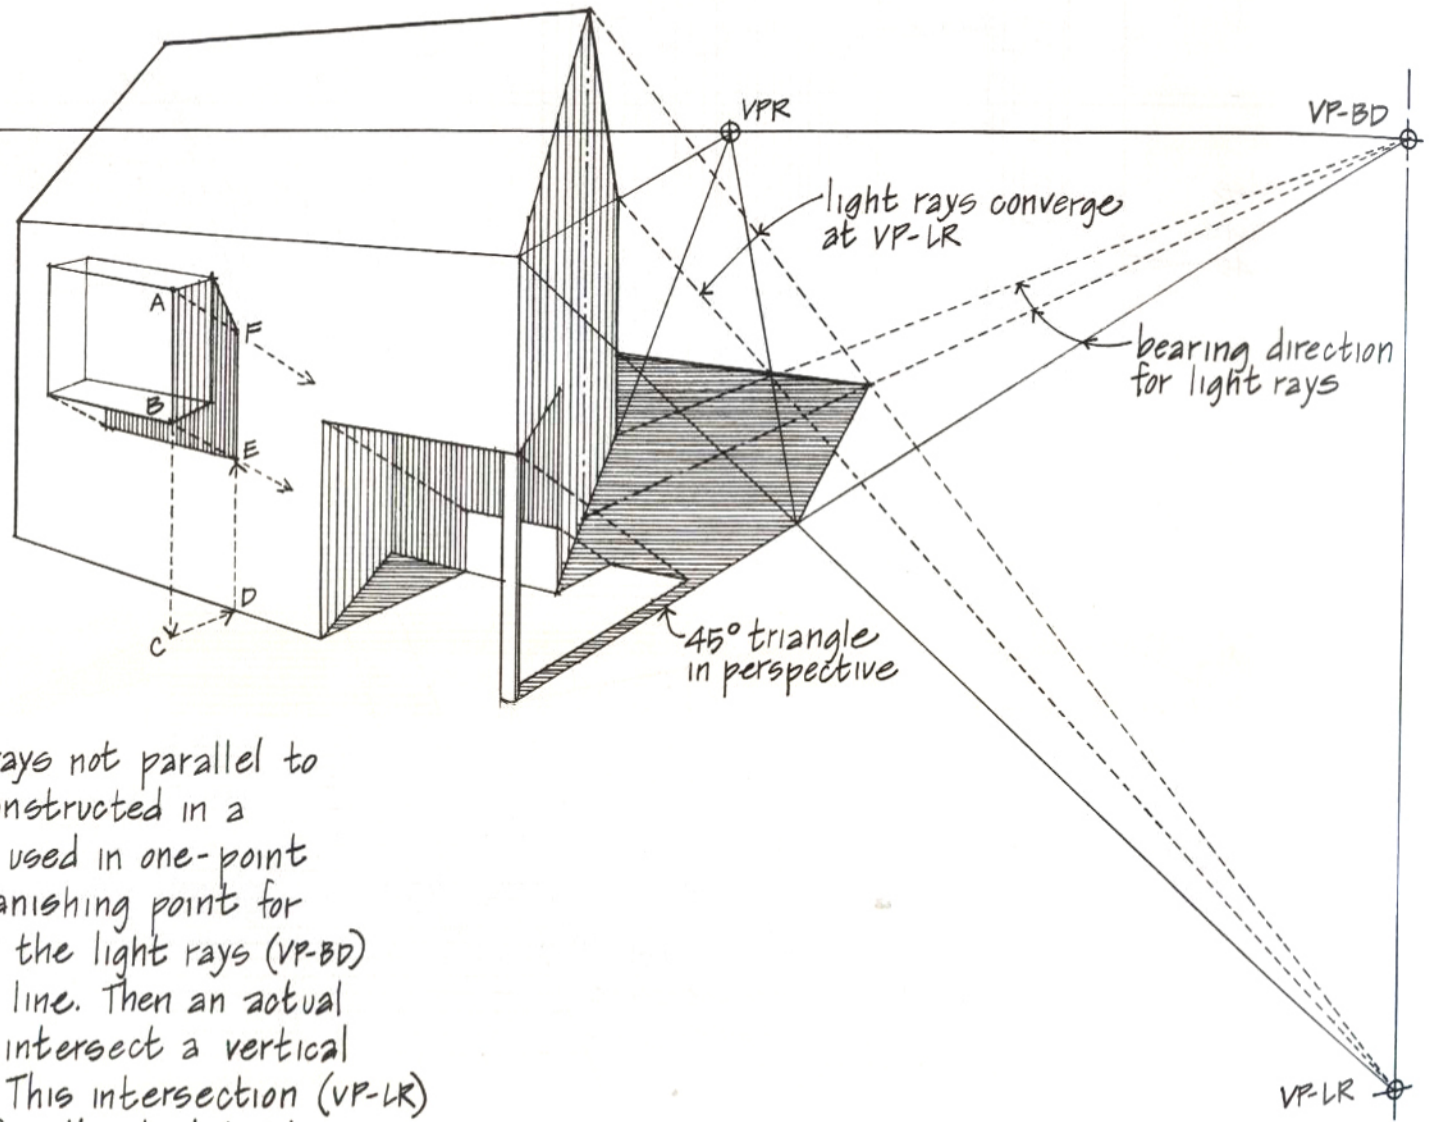 VPR
VP-BD
light rays converge
at VP-LR
A
F
bearing direction
for light rays
B
E
D
C
45° triangle
in perspective
ays not parallel to
nstructed in a
used in one-point
anishing point for
the light rays (VP-BD)
line. Then an actual
intersect a vertical
This intersection (VP-LR)
VP-LR